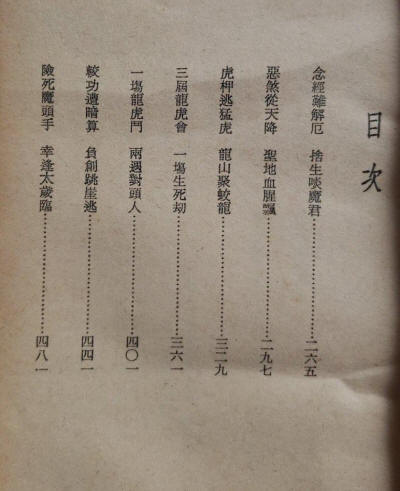 目次
念經難解厄 捨生啖魔君⋯⋯⋯⋯二六五
惡煞從天降 聖地血腥飄⋯⋯⋯⋯二九七
虎柙逃猛虎 龍山聚蛟龍⋯⋯⋯⋯三二九
三屆龍虎會 一塲生死劫⋯⋯⋯⋯三六一
一塲龍虎鬥 兩遇對頭人⋯⋯⋯⋯四〇一
較功遭暗算 負創跳崖逃⋯⋯⋯⋯四四一
險死魔頭手 幸逢太歲臨⋯⋯⋯⋯四八一